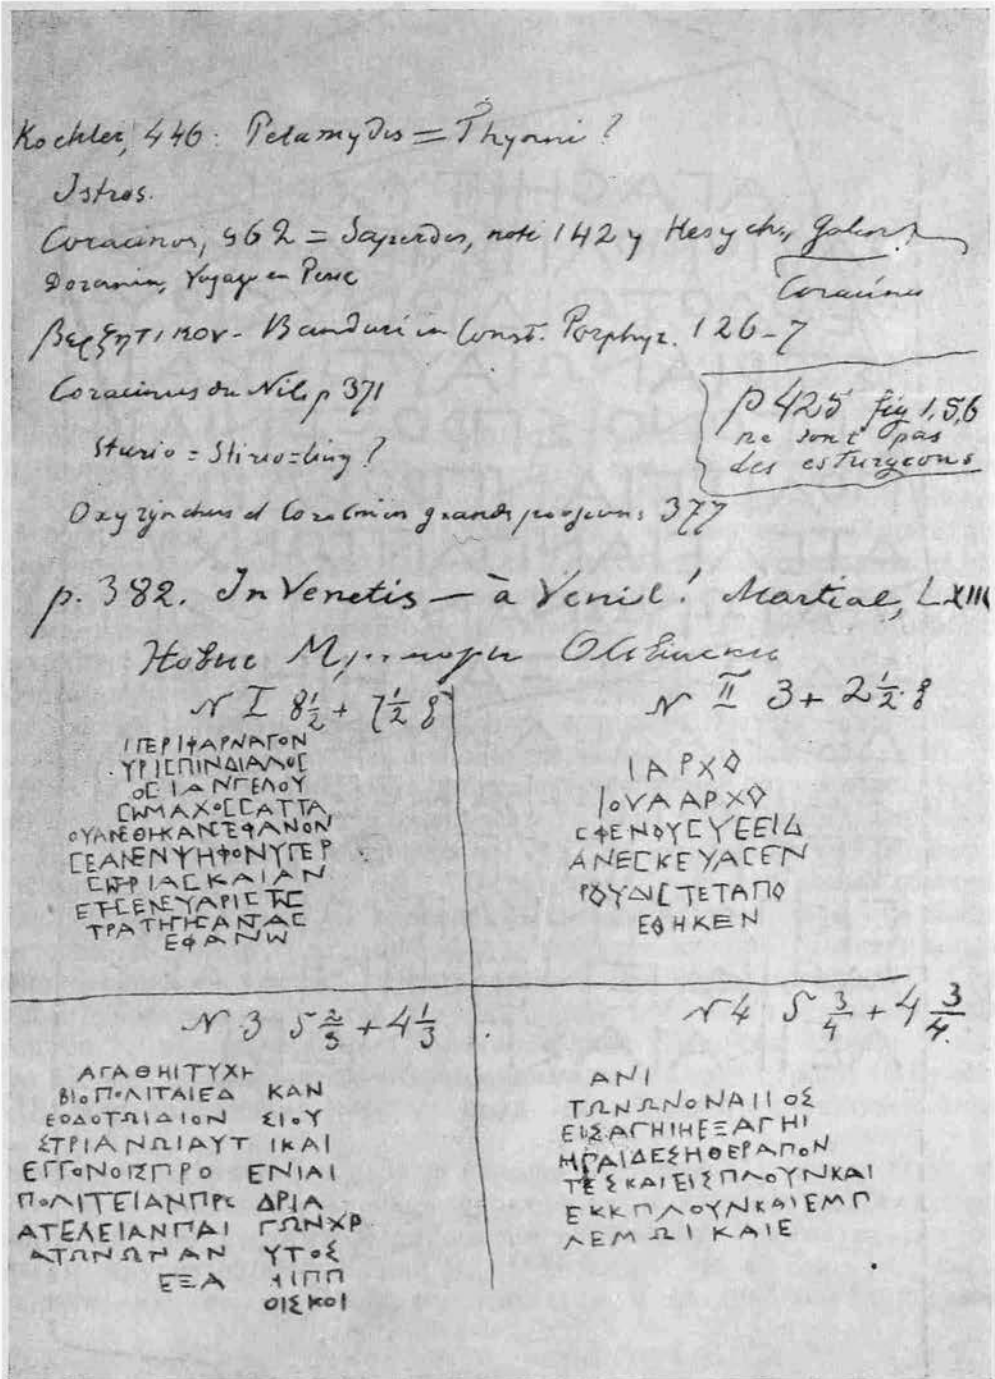 Kochler, 446: Pelamydis = Thynni?
Istros.
Coracinus, 462 = Saperdes, note 142 y Hesych.,
Coracinus
Voyage en Perse
Banduri in Const. Porphyr. 126-7
Coracinus du Nil p 371
p 425 fig 1,5,6
ne sont pas
des esturgeons
Sturio = ?
Oxyrynchus et Coracinus grands 377
p. 382. In Venetis — à Venise! Martial, LXIII
N I 8½ + 7½ 8
ΙΠΕΡΙΦΑΡΝΑΓΟΝ
ΥΡΙCΠΙΝΔΙΑΛΟC
ΟCΙΑΝΓΕΛΟΥ
CΩΜΑΧΟCCΑΤΤΑ
ΟΥΑΝΕΘΗΚΑΝCΕΦΑΝΟΝ
CΕΑΝΕΝΨΗΦΟΝΥΠΕΡ
CΩΤΡΙΑCΚΑΙΑΝ
ΤΡΑΤΗΓΗCΑΝΤΑC
ΕΦΑΝΩ
N II 3 + 2½ 8
ΙΑΡΧΟ
ΙΟΥΑΑΡΧΟ
CΦΕΝΟΥCΥΕΕΙΔ
ΑΝΕCΚΕΥΑCΕΝ
ΕΘΗΚΕΝ
N 3 5⅔ + 4⅓
ΑΓΑΘΗΙΤΥΧΗ
ΒΙΟΠΟΛΙΤΑΙΕΔ ΚΑΝ
ΕΟΔΟΤΩΙΔΙΟΝ ΣΙΟΥ
ΣΤΡΙΑΝΩΙΑΥΤ ΙΚΑΙ
ΕΓΓΟΝΟΙΣΠΡΟ ΕΝΙΑΙ
ΠΟΛΙΤΕΙΑΝΠΡΟ ΔΡΙΑ
ΑΤΕΛΕΙΑΝΠΑΙ ΓΩΝΧΡ
ΑΤΩΝΩΝΑΝ ΥΤΟΣ
ΕΞΑ ΗΙΠΠ
ΟΙΣΚΟΙ
N 4 5¾ + 4¾
ΑΝΙ
ΤΩΝΩΝΟΝΑΙΙΟΣ
ΕΙΣΑΓΗΙΗΕΞΑΓΗΙ
ΗΠΑΙΔΕΣΗΘΕΡΑΠΟΝ
ΤΕΣΚΑΙΕΙΣΠΛΟΥΝΚΑΙ
ΕΚΚΠΛΟΥΝΚΑΙΕΜΠ
ΛΕΜΩΙΚΑΙΕ